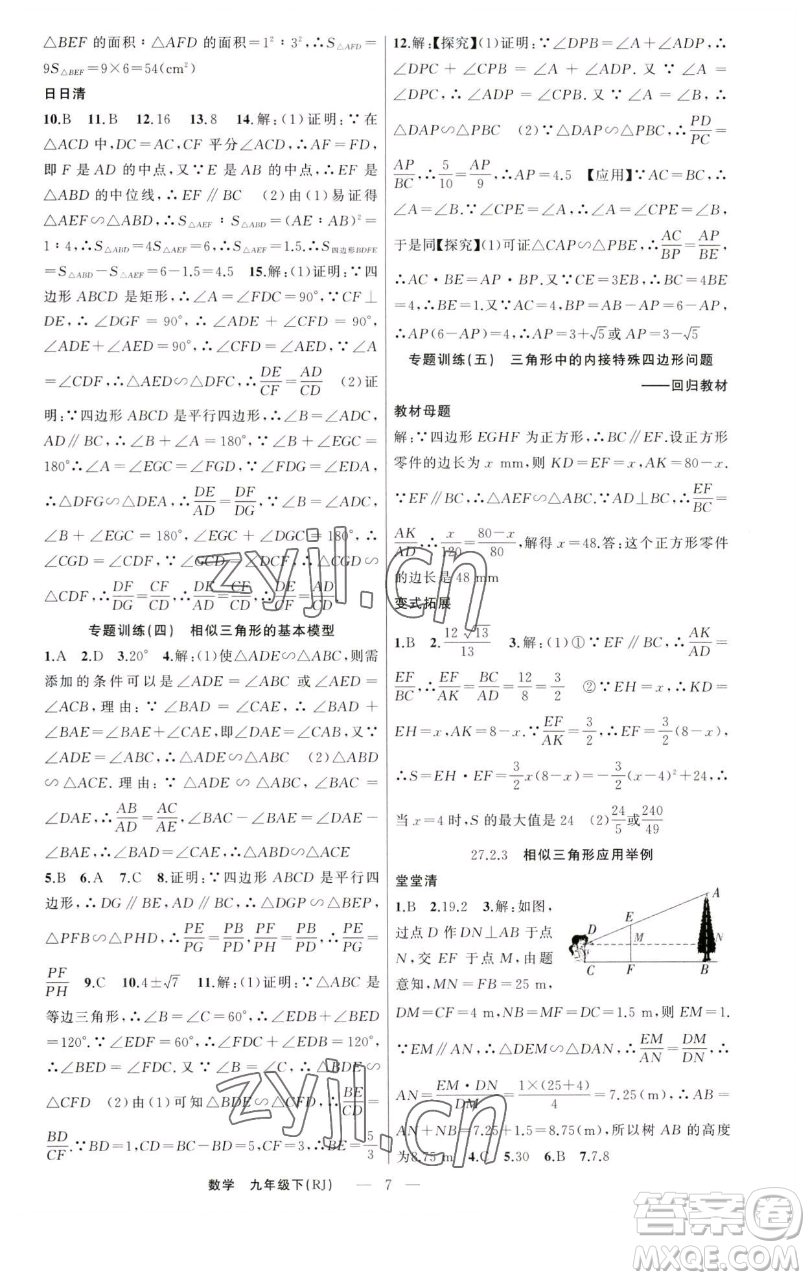 △BEF 的面积∶△AFD 的面积=1²∶3²,∴S△AFD=
9S△BEF=9×6=54(cm²)
日日清
10.B 11.B 12.16 13.8 14.解:(1)证明:∵在
△ACD 中,DC=AC,CF 平分∠ACD,∴AF=FD,
即 F 是 AD 的中点,又∵E 是 AB 的中点,∴EF 是
△ABD 的中位线,∴EF∥BC (2)由(1)易证得
△AEF∽△ABD,∴S△AEF∶S△ABD=(AE∶AB)²=
1∶4,∴S△ABD=4S△AEF=6,∴S△AEF=1.5,∴S四边形BDFE
=S△ABD-S△AEF=6-1.5=4.5 15.解:(1)证明:∵四
边形 ABCD 是矩形,∴∠A=∠FDC=90°,∵CF⊥
DE,∴∠DGF=90°,∴∠ADE+∠CFD=90°,
∠ADE+∠AED=90°,∴∠CFD=∠AED,∵∠A
=∠CDF,∴△AED∽△DFC,∴DE/CF=AD/CD (2)证
明:∵四边形 ABCD 是平行四边形,∴∠B=∠ADC,
AD∥BC,∴∠B+∠A=180°,∵∠B+∠EGC=
180°,∴∠A=∠EGC=∠FGD,∵∠FDG=∠EDA,
∴△DFG∽△DEA,∴DE/AD=DF/DG,∵∠B=∠ADC,
∠B+∠EGC=180°,∠EGC+∠DGC=180°,∴
∠CGD=∠CDF,∵∠GCD=∠DCF,∴△CGD∽
△CDF,∴DF/DG=CF/CD,∴DE/AD=CF/CD,∴DE/CF=AD/CD
专题训练(四) 相似三角形的基本模型
1.A 2.D 3.20° 4.解:(1)使△ADE∽△ABC,则需
添加的条件可以是∠ADE=∠ABC 或∠AED=
∠ACB,理由:∵∠BAD=∠CAE,∴∠BAD+
∠BAE=∠BAE+∠CAE,即∠DAE=∠CAB,又∵
∠ADE=∠ABC,∴△ADE∽△ABC (2)△ABD
∽△ACE.理由:∵△ADE∽△ABC,∴∠BAC=
∠DAE,∴AB/AD=AC/AE,∠BAC-∠BAE=∠DAE-
∠BAE,∴∠CAE=∠BAD,∴△ABD∽△ACE
5.B 6.A 7.C 8.证明:∵四边形 ABCD 是平行四
边形,∴DG∥BH,AD∥BC,∴△DGP∽△BEP,
△PFB∽△PHD,∴PE/PG=PB/PD,PF/PH=PB/PD,∴PE/PG=
PF/PH 9.C 10.4±√7 11.解:(1)证明:∵△ABC 是
等边三角形,∴∠B=∠C=60°,∴∠BDE+∠BED=
120°,∵∠EDF=60°,∴∠BDE+∠FDC=120°,
∴∠BED=∠FDC.又∵∠B=∠C,∴△BDE∽
△CFD (2)由(1)可知△BDE∽△CFD,∴BE/CD=
BD/CF.∵BD=1,CD=BC-BD=2,CF=3,∴BE=5/3
12.解:【探究】(1)证明:∵∠DPB=∠A+∠ADP,∴
∠DPC+∠CPB=∠A+∠ADP.又∵∠A=
∠DPC,∴∠ADP=∠CPB.又∵∠A=∠B,∴
△DAP∽△PBC (2)∵△DAP∽△PBC,∴PD/PC=
AP/BC,∴5/10=AP/9,∴AP=4.5 【应用】∵AC=BC,∴
∠A=∠B.∵∠CPE=∠A,∴∠A=∠CPE=∠B,
于是同【探究】(1)可证△CAP∽△PBE,∴AC/BP=AP/BE,
∴AC·BE=AP·BP.又∵CE=3EB,∴BC=4BE
=4,∴BE=1.又∵AC=BC,BP=AB-AP=6-AP,
∴AP(6-AP)=4,∴AP=3+√5或AP=3-√5
专题训练(五) 三角形中的内接特殊四边形问题
——回归教材
教材母题
解:∵四边形 EGHF 为正方形,∴BC∥EF.设正方形
零件的边长为 x mm,则 KD=EF=x,AK=80-x.
∵EF∥BC,∴△AEF∽△ABC.∵AD⊥BC,∴EF/BC=
AK/AD,∴x/120=80-x/80,解得 x=48.答:这个正方形零件
的边长是 48 mm
变式拓展
1.B 2.12√13/13 3.解:(1)①∵EF∥BC,∴AK/AD=
EF/BC,∴EF/AK=BC/AD=12/8=3/2 ②∵EH=x,∴KD=
EH=x,AK=8-x.∵EF/AK=3/2,∴EF=3/2(8-x),
∴S=EH·EF=3/2x(8-x)=-3/2(x-4)²+24,∴
当 x=4 时,S 的最大值是 24 (2)24/5或240/49
27.2.3 相似三角形应用举例
堂堂清
1.B 2.19.2 3.解:如图,
过点 D 作 DN⊥AB 于点
N,交 EF 于点 M,由题
意知,MN=FB=25 m,
DM=CF=4 m,NB=MF=DC=1.5 m,则 EM=1.
∵EM∥AN,∴△DEM∽△DAN,∴EM/AN=DM/DN,∴
AN=EM·DN/DM=1×(25+4)/4=7.25(m),∴AB=
AN+NB=7.25+1.5=8.75(m),所以树 AB 的高度
为8.75 m 4.C 5.30 6.B 7.7.8
A
D E M N
C F B
数学 九年级下(RJ) — 7 —
zyjl.cn
zyjl.cn
答案圈
MXQE.COM